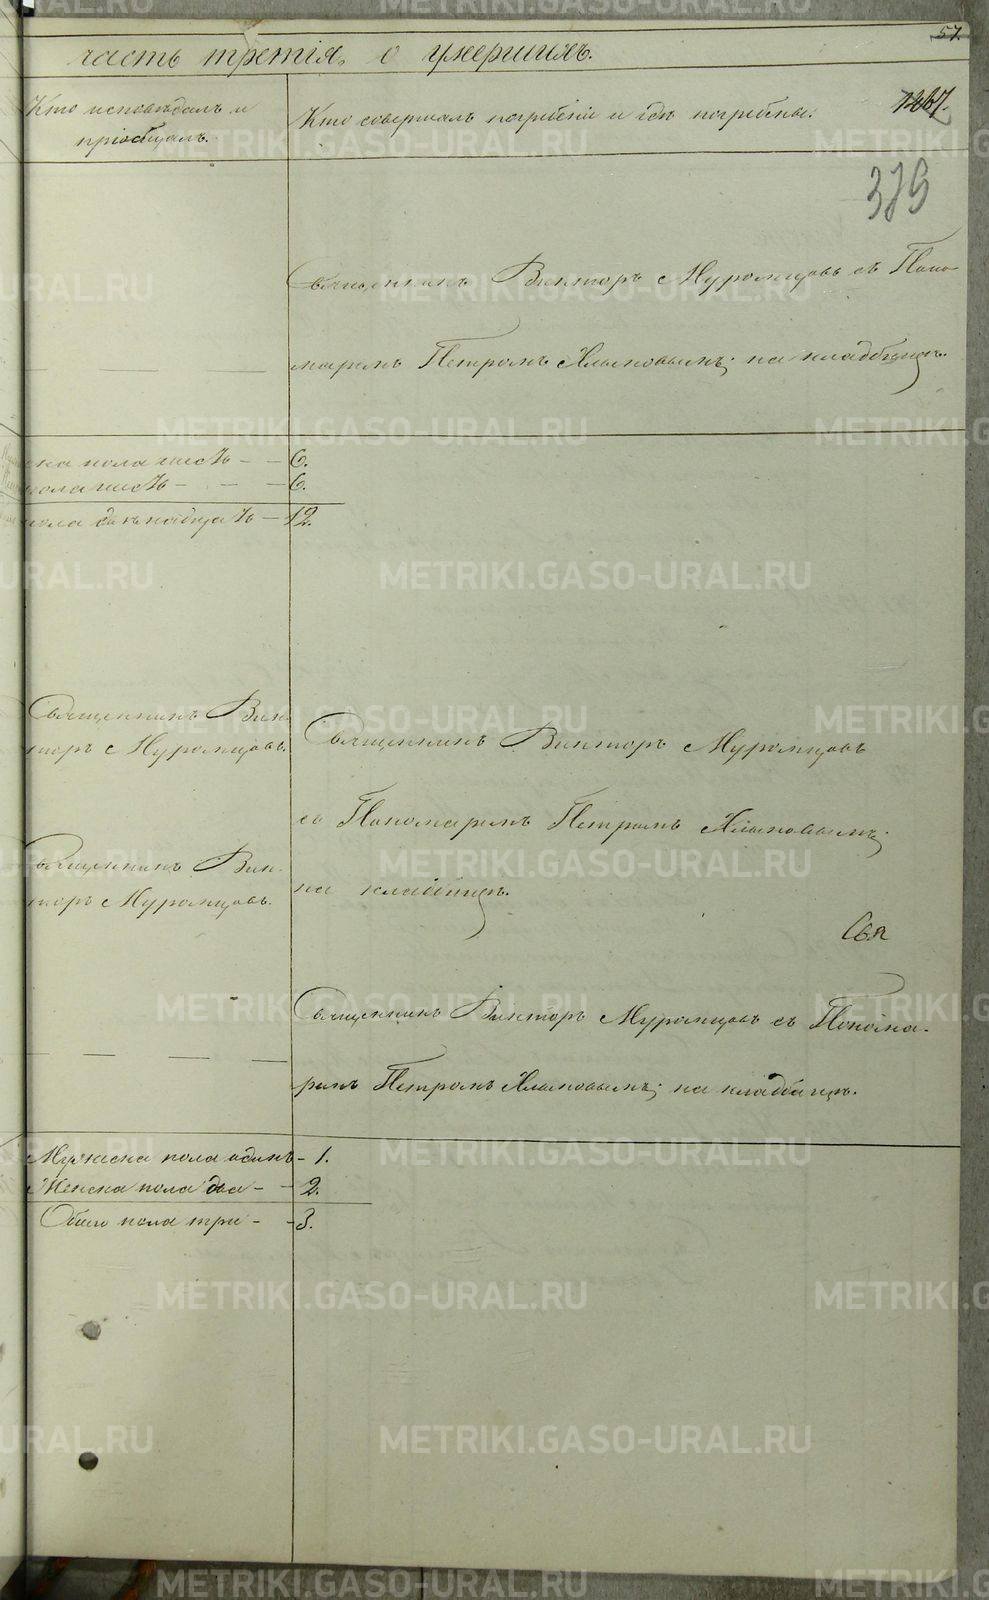 57.
часть третія, о умершихъ.
Кто исповѣдалъ и
пріобщалъ.
Кто совершалъ погребеніе и гдѣ погребены.
1267.
379
Священникъ Викторъ Муромцовъ съ Поно-
маремъ Петромъ на кладбищѣ.
ска пола шесть - - 6.
пола шесть - - - 6.
пола двѣнадцать - 12.
Священникъ Вик-
торъ Муромцовъ.
Священникъ Викторъ Муромцовъ
съ Пономаремъ Петромъ
на кладбищѣ.
Священникъ Вик-
торъ Муромцовъ.
Свя
Священникъ Викторъ Муромцовъ съ Понома-
ремъ Петромъ на кладбищѣ.
Мужеска пола одинъ - 1.
Женска пола два - - 2.
Обоего пола три - - 3.
METRIKI.GASO-URAL.RU